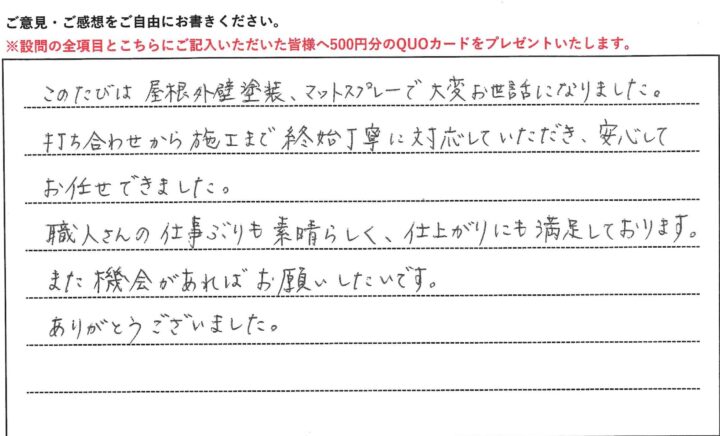 ご意見・ご感想をご自由にお書きください。
※設問の全項目とこちらにご記入いただいた皆様へ500円分のQUOカードをプレゼントいたします。
このたびは屋根外壁塗装、マットスプレーで大変お世話になりました。
打ち合わせから施工まで終始丁寧に対応していただき、安心して
お任せできました。
職人さんの仕事ぶりも素晴らしく、仕上がりにも満足しております。
また機会があればお願いしたいです。
ありがとうございました。